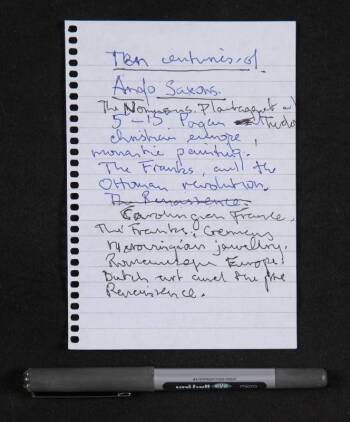 Ten centuries of
Anglo Saxons.
The Normans, Plantagenet
5-15 Pagan Tudor
christian europe
monastic painting.
The Franks, and the
Ottoman revolution.
The Renaissance.
Carolingian France.
The Franks. Germany
Merovingian jewellery.
Romanesque Europe.
Dutch art and the pre
Renaissance.
uni-ball eye micro